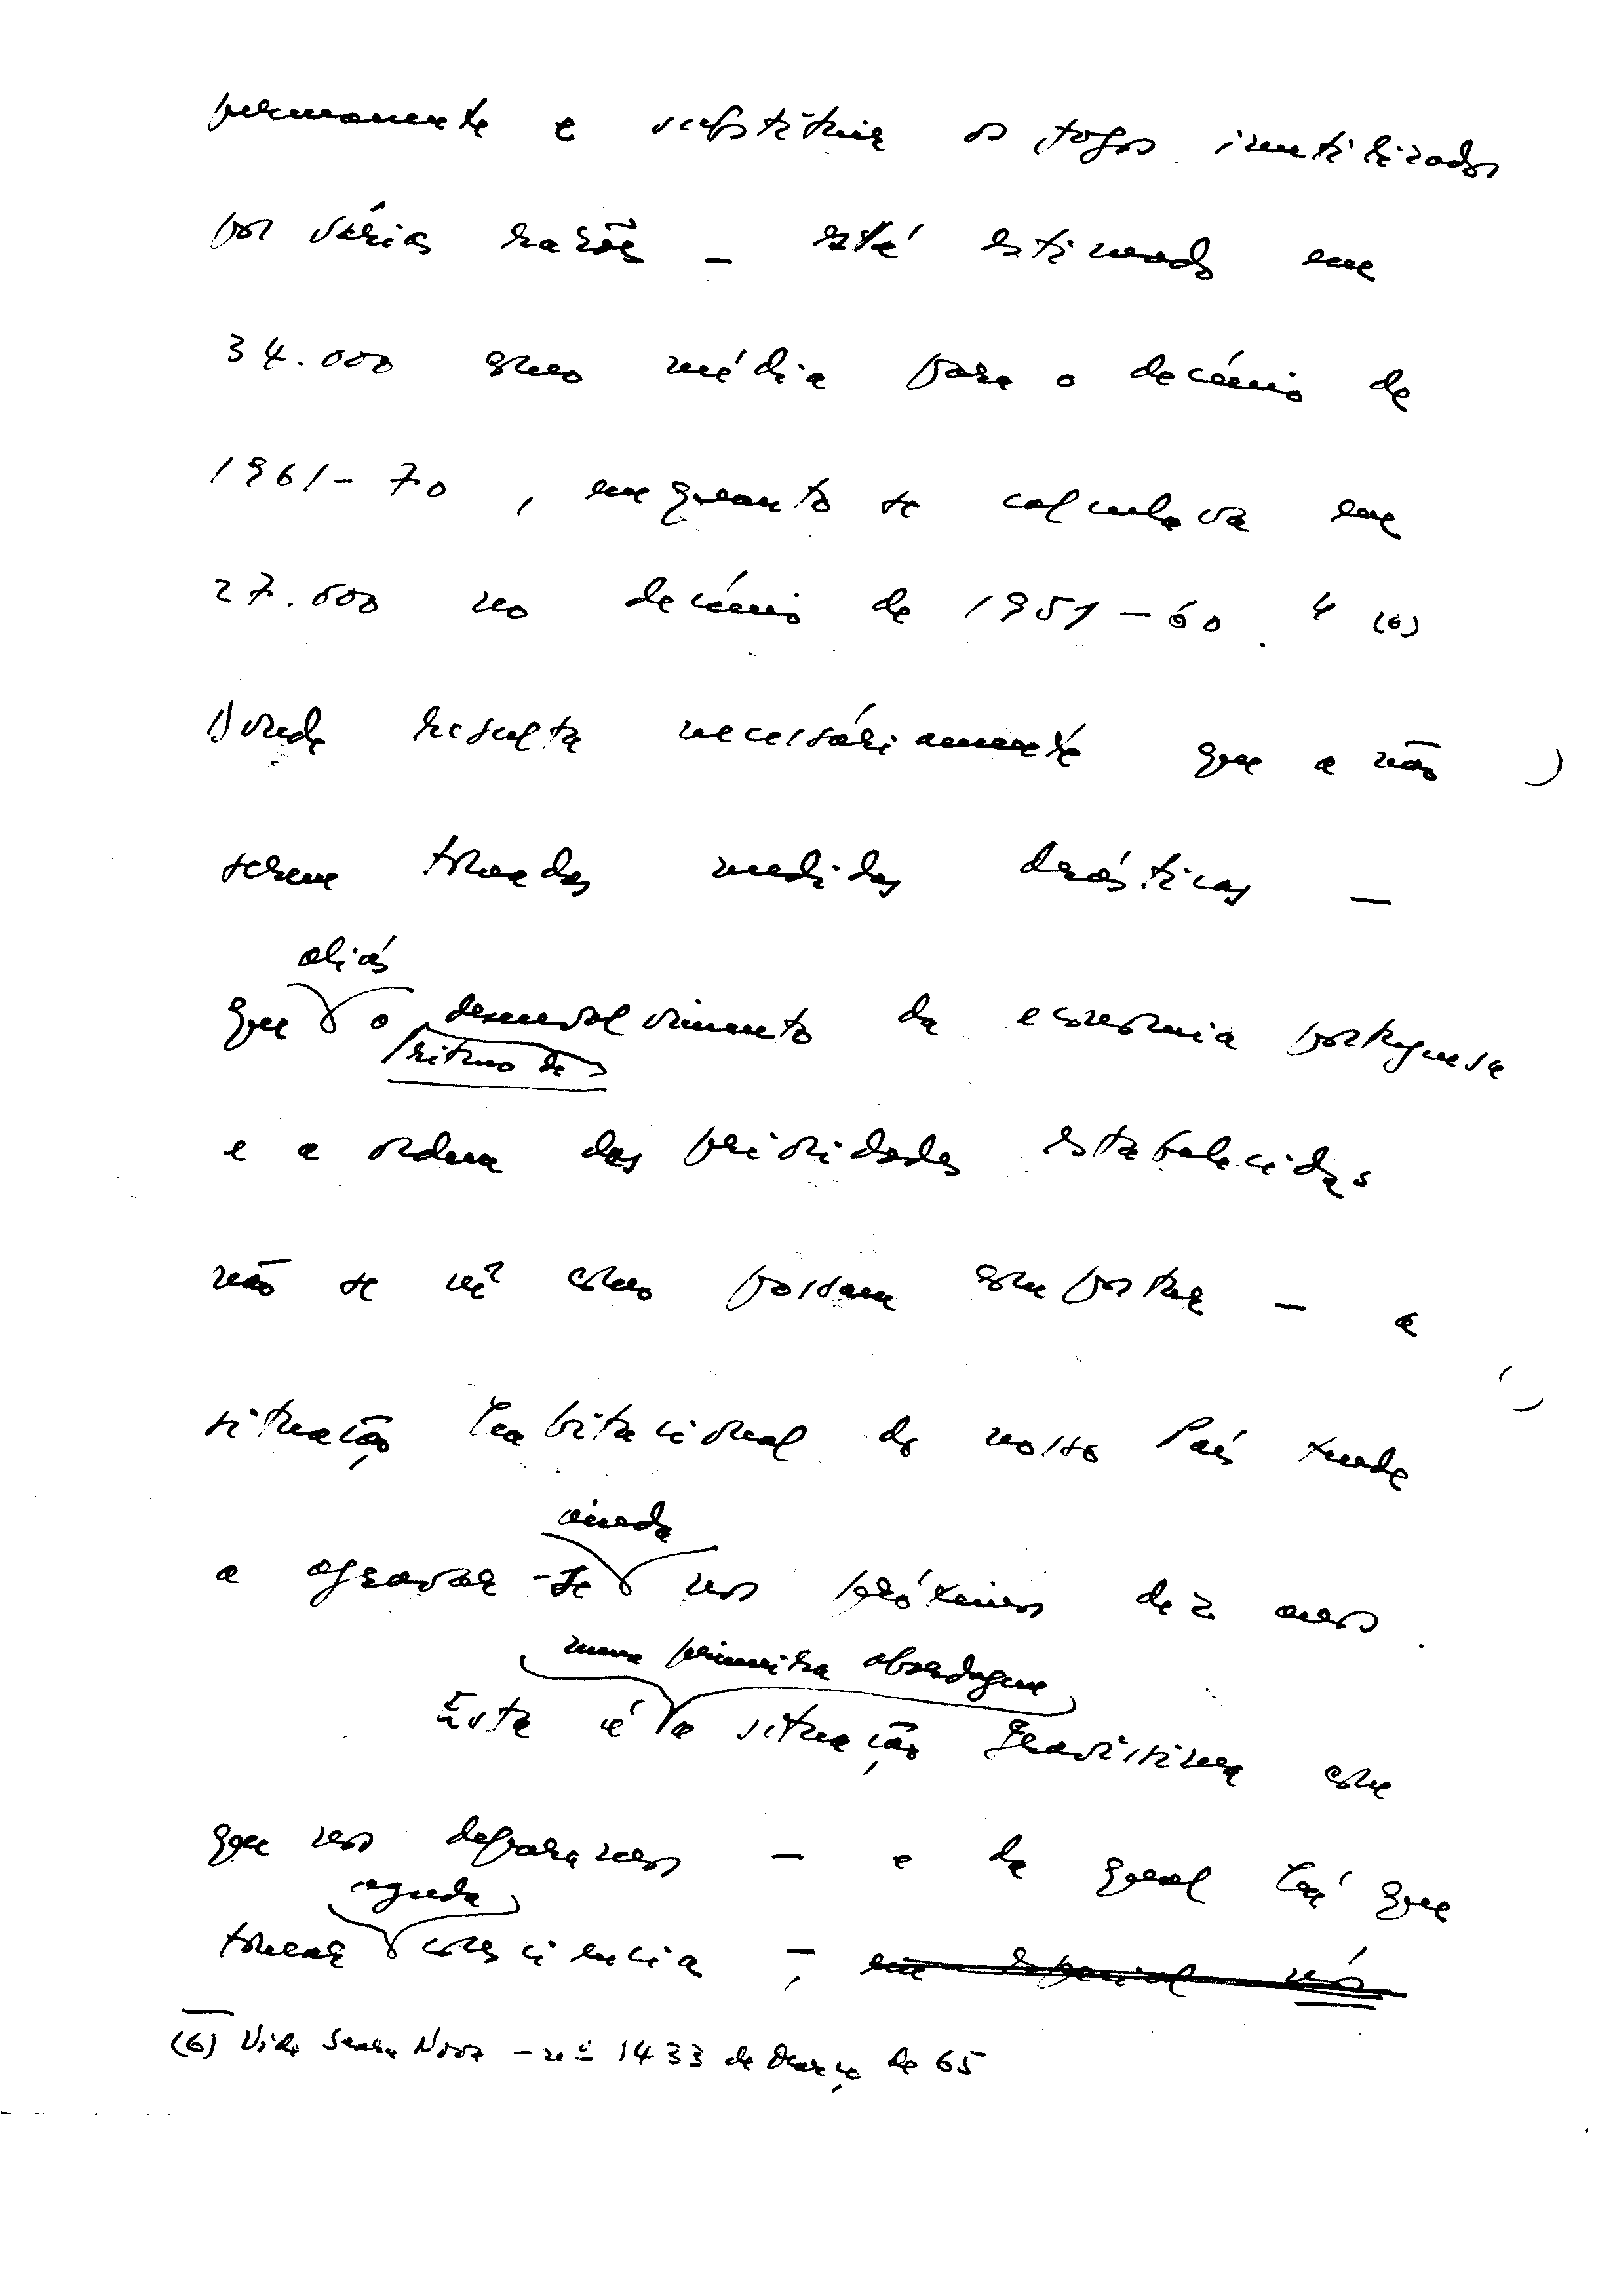 permanente e substituir os fogos inutilizados
por várias razões – está estimado em
34.000 como média para o decénio de
1961-70, enquanto se calculava em
27.600 no decénio de 1951-60." (6)
Donde resulta necessáriamente que a não
serem tomadas medidas drásticas –
aliás
que o desenvolvimento da economia portuguesa
ritmo de
e a ordem das prioridades estabelecidas
não se vê como possam comportar – a
situação habitacional do nosso País tende
ainda
a agravar-se nos próximos dez anos.
numa primeira abordagem
Esta é a situação gravíssima com
que nos deparamos – e da qual há que
aguda
tomar consciencia –, em especial nós
(6) Vide Seara Nova – nº 1433 de Março de 65